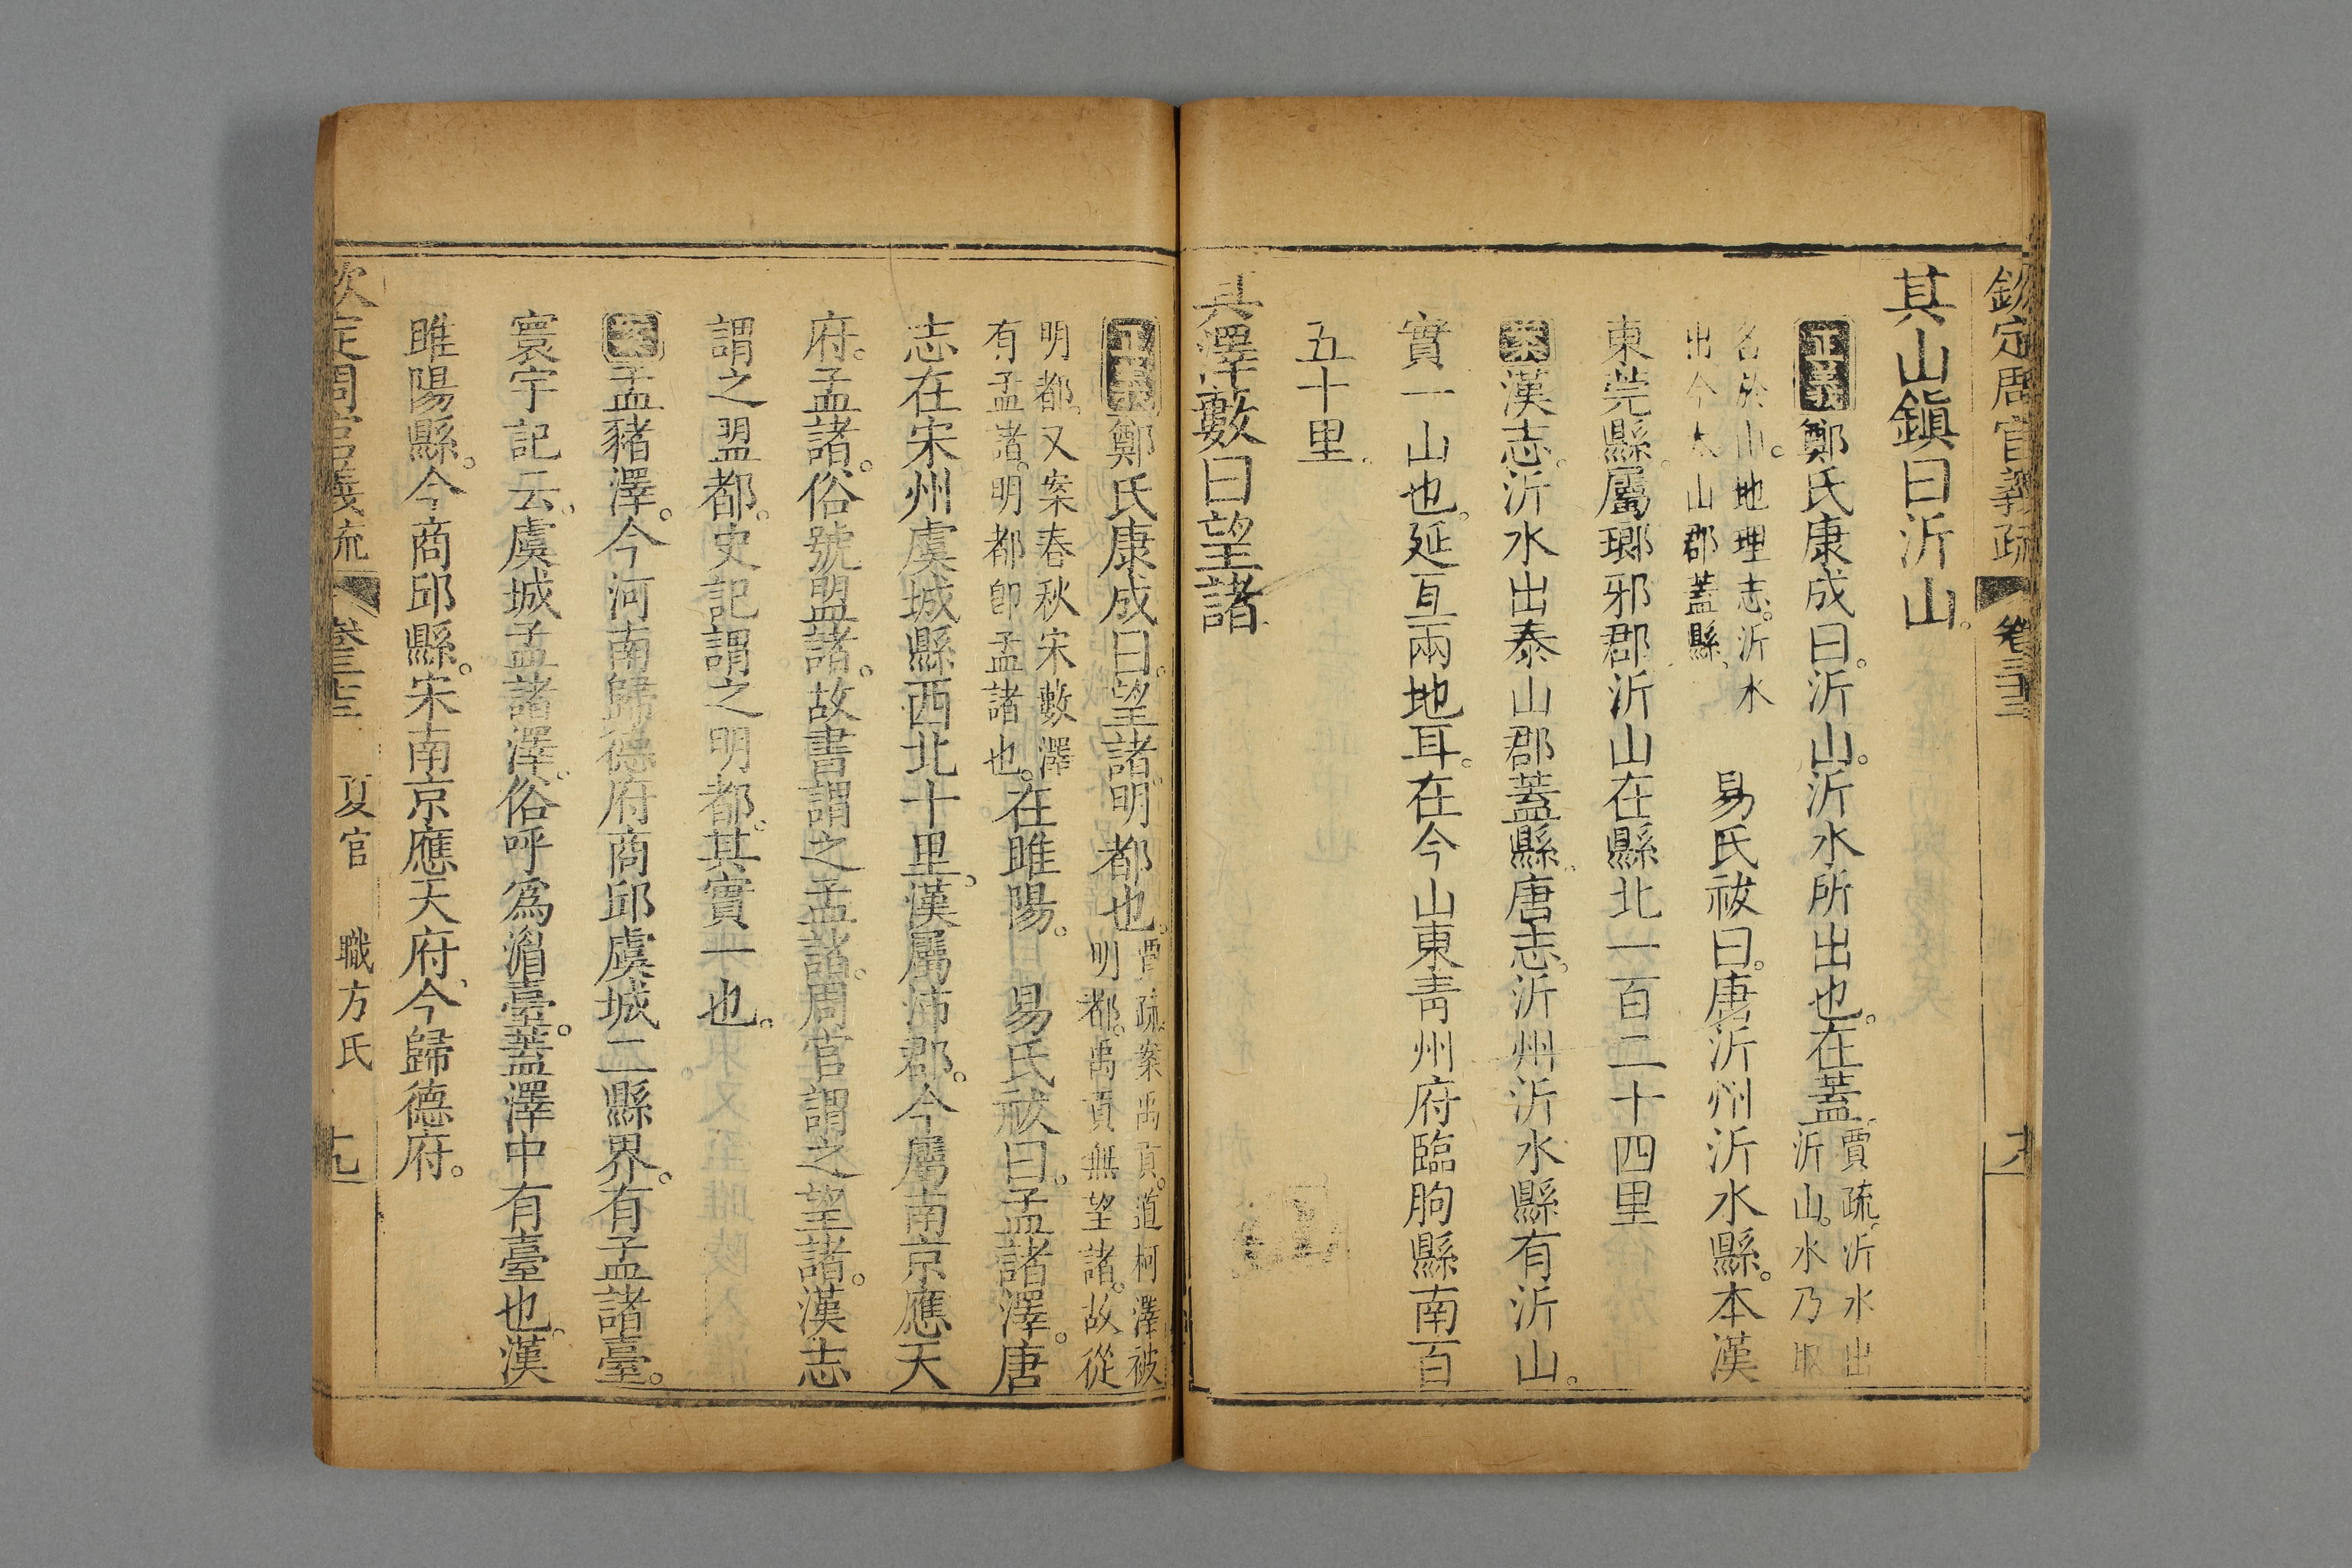 欽定周官義疏 卷三十三
其山鎮曰沂山。
正義 鄭氏康成曰。沂山。沂水所出也。在蓋。賈疏。沂水出沂山。水乃取
名於山。地理志。沂水出今太山郡蓋縣、 易氏祓曰。唐沂州沂水縣。本漢
東莞縣。屬瑯邪郡。沂山在縣北一百二十四里
案 漢志。沂水出泰山郡蓋縣。唐志。沂州沂水縣有沂山。
實一山也。延亙兩地耳。在今山東青州府臨朐縣南百
五十里。
其澤藪曰望諸
正義 鄭氏康成曰。望諸。明都也。賈疏。案禹貢。道柯澤被明都。禹貢無望諸。故從
明都。又案春秋宋藪澤有孟諸。明都卽孟諸也。在雎陽。 易氏祓曰。孟諸澤。唐
志在宋州虞城縣西北十里。漢屬沛郡。今屬南京應天
府。孟諸。俗號盟諸。故書謂之孟諸。周官謂之望諸。漢志
謂之盟都。史記謂之明都。其實一也。
案 孟豬澤。今河南歸德府商邱虞城二縣界。有孟諸臺。
寰宇記云。虞城孟諸澤。俗呼爲湄臺。蓋澤中有臺也。漢
雎陽縣。今商邱縣。宋南京應天府、今歸德府。
欽定周官義疏 卷三十三 夏官 職方氏 十九